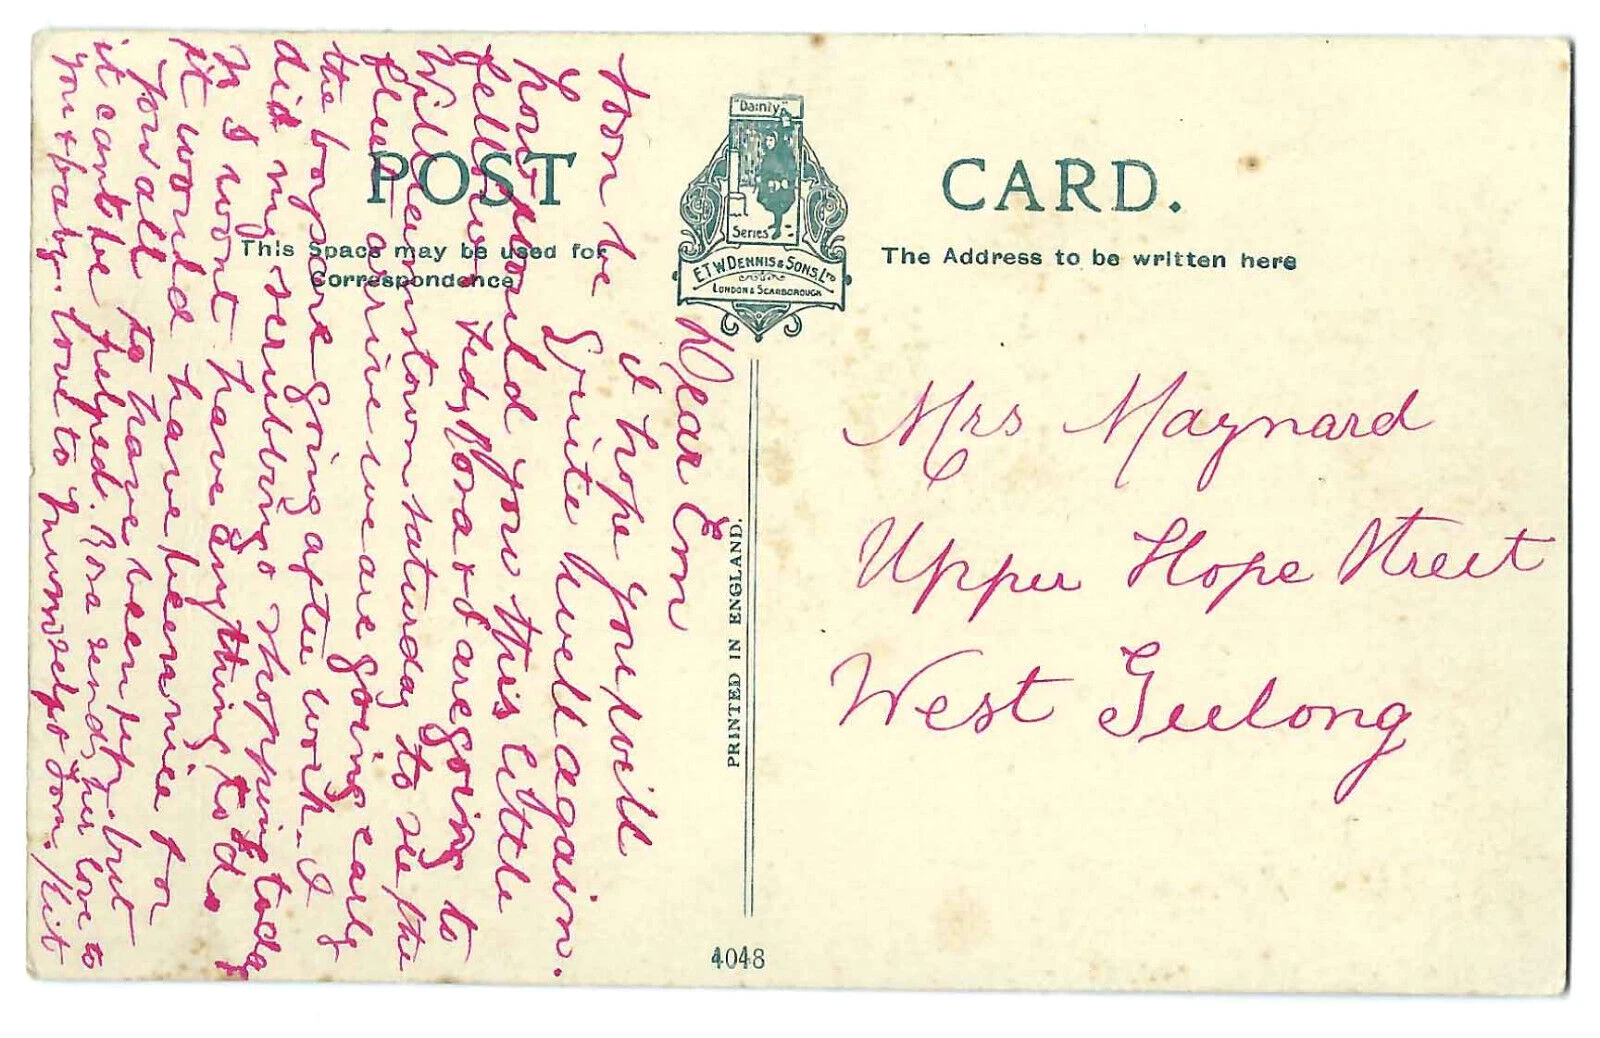 POST
CARD.
"Dainty"
Series
E.T.W. DENNIS & SONS, LTD
LONDON & SCARBOROUGH
This Space may be used for
Correspondence
The Address to be written here
PRINTED IN ENGLAND.
4048
Dear Em
I hope you will
soon be quite well again.
how would you this little
fellow. Ted, Nora & I are going to
Williamstown saturday to see the
fleet arrive we are going early
the boys are going after work. I
did my scrubbing & shopping today
so I wont have anything to do
it would have been nice for
you all to have been up. but
it cant be helped. Rosa sends her love to
you & baby. love to yourself & Tom. Kit
Mrs Maynard
Upper Hope Street
West Geelong